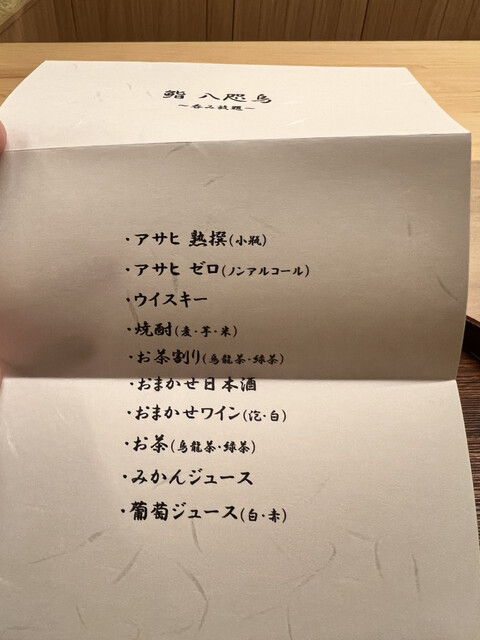 鮨 八咫烏
～呑み放題～
・アサヒ 熟撰(小瓶)
・アサヒ ゼロ(ノンアルコール)
・ウイスキー
・焼酎(麦・芋・米)
・お茶割り(烏龍茶・緑茶)
・おまかせ日本酒
・おまかせワイン(泡・白)
・お茶(烏龍茶・緑茶)
・みかんジュース
・葡萄ジュース(白・赤)